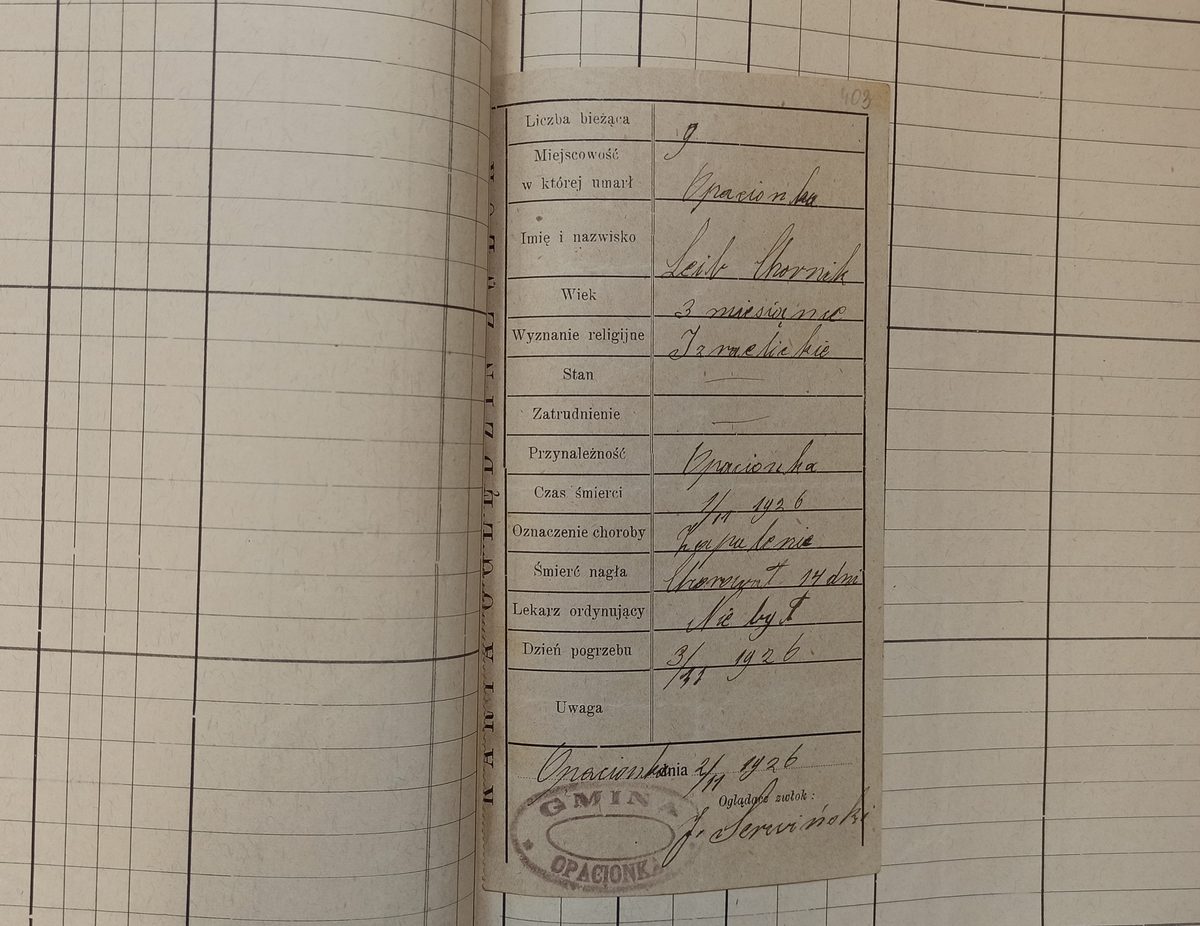 403
KARTA OGLĘDZIN ZWŁOK
Liczba bieżąca 9
Miejscowość
w której umarł Opacionka
Imię i nazwisko Leib Chornik
Wiek 3 miesiące
Wyznanie religijne Izraelickie
Stan —
Zatrudnienie —
Przynależność Opacionka
Czas śmierci 1/11 1926
Oznaczenie choroby Zapalenie
Śmierć nagła Chorował 14 dni
Lekarz ordynujący Nie był
Dzień pogrzebu 3/11 1926
Uwaga
Opacionka dnia 2/11 1926
Oglądacz zwłok:
J. Serwiński
GMINA
OPACIONKA